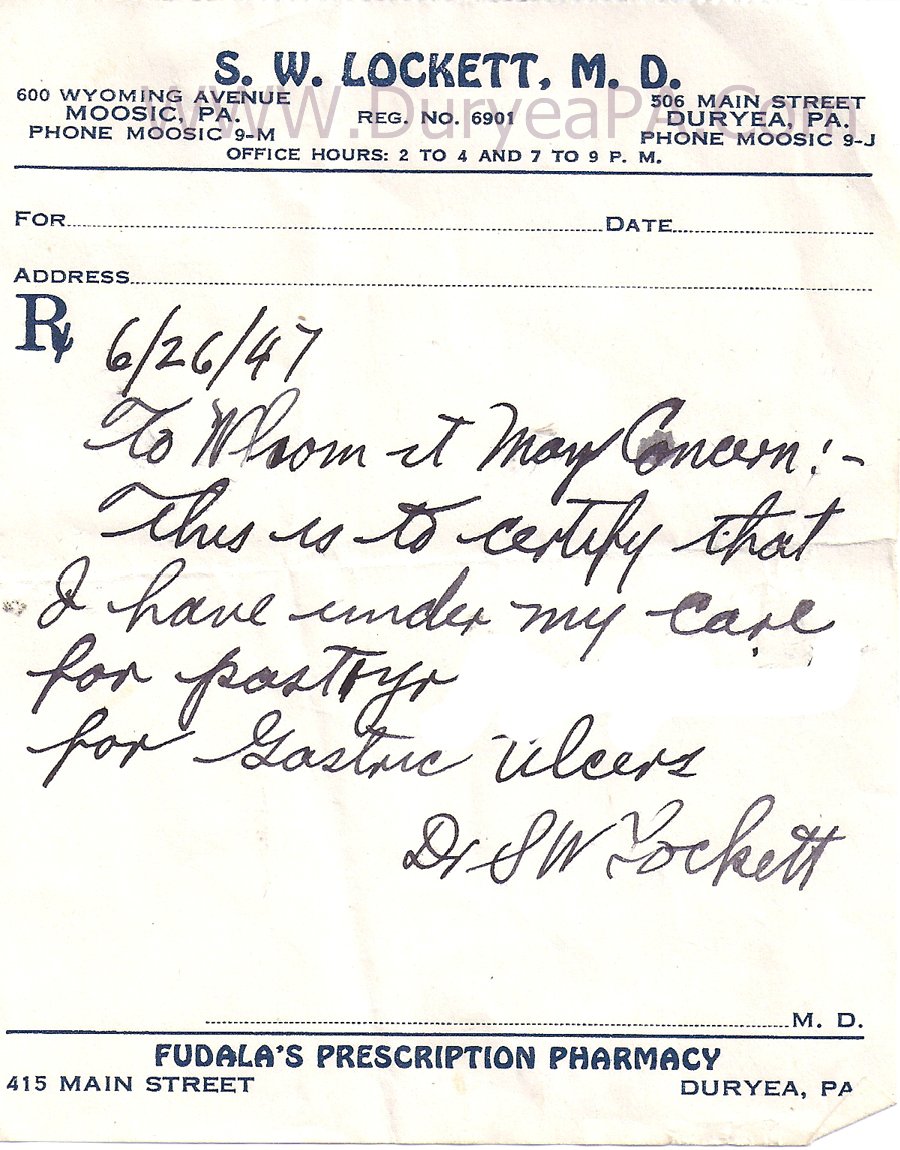 S. W. LOCKETT, M. D.
600 WYOMING AVENUE
MOOSIC, PA.
PHONE MOOSIC 9-M
REG. NO. 6901
506 MAIN STREET
DURYEA, PA.
PHONE MOOSIC 9-J
WWW.DuryeaPA.Com
OFFICE HOURS: 2 TO 4 AND 7 TO 9 P. M.
FOR
DATE
ADDRESS
Rx
6/26/47
To Whom it May Concern:-
This is to certify that
I have under my care
for past yr
for Gastric Ulcers
Dr S W Lockett
M. D.
FUDALA'S PRESCRIPTION PHARMACY
415 MAIN STREET
DURYEA, PA